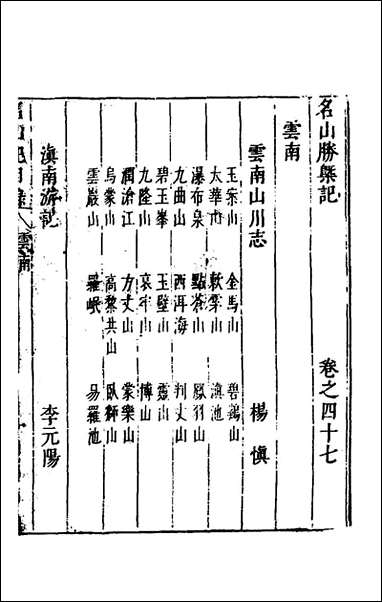 名山勝槩記 卷之四十七
雲南
雲南山川志 楊慎
玉案山 金馬山 碧鷄山
太華山 軟雲山 滇池
瀑布泉 點蒼山 鳳羽山
九曲山 西洱海 判丈山
碧玉峯 玉壁山 靈山
九隆山 哀牢山 博山
瀾滄江 方丈山 蒙樂山
烏蒙山 高黎共山 臥獅山
雲巖山 羅岷 易羅池
滇南游記 李元陽
雲南